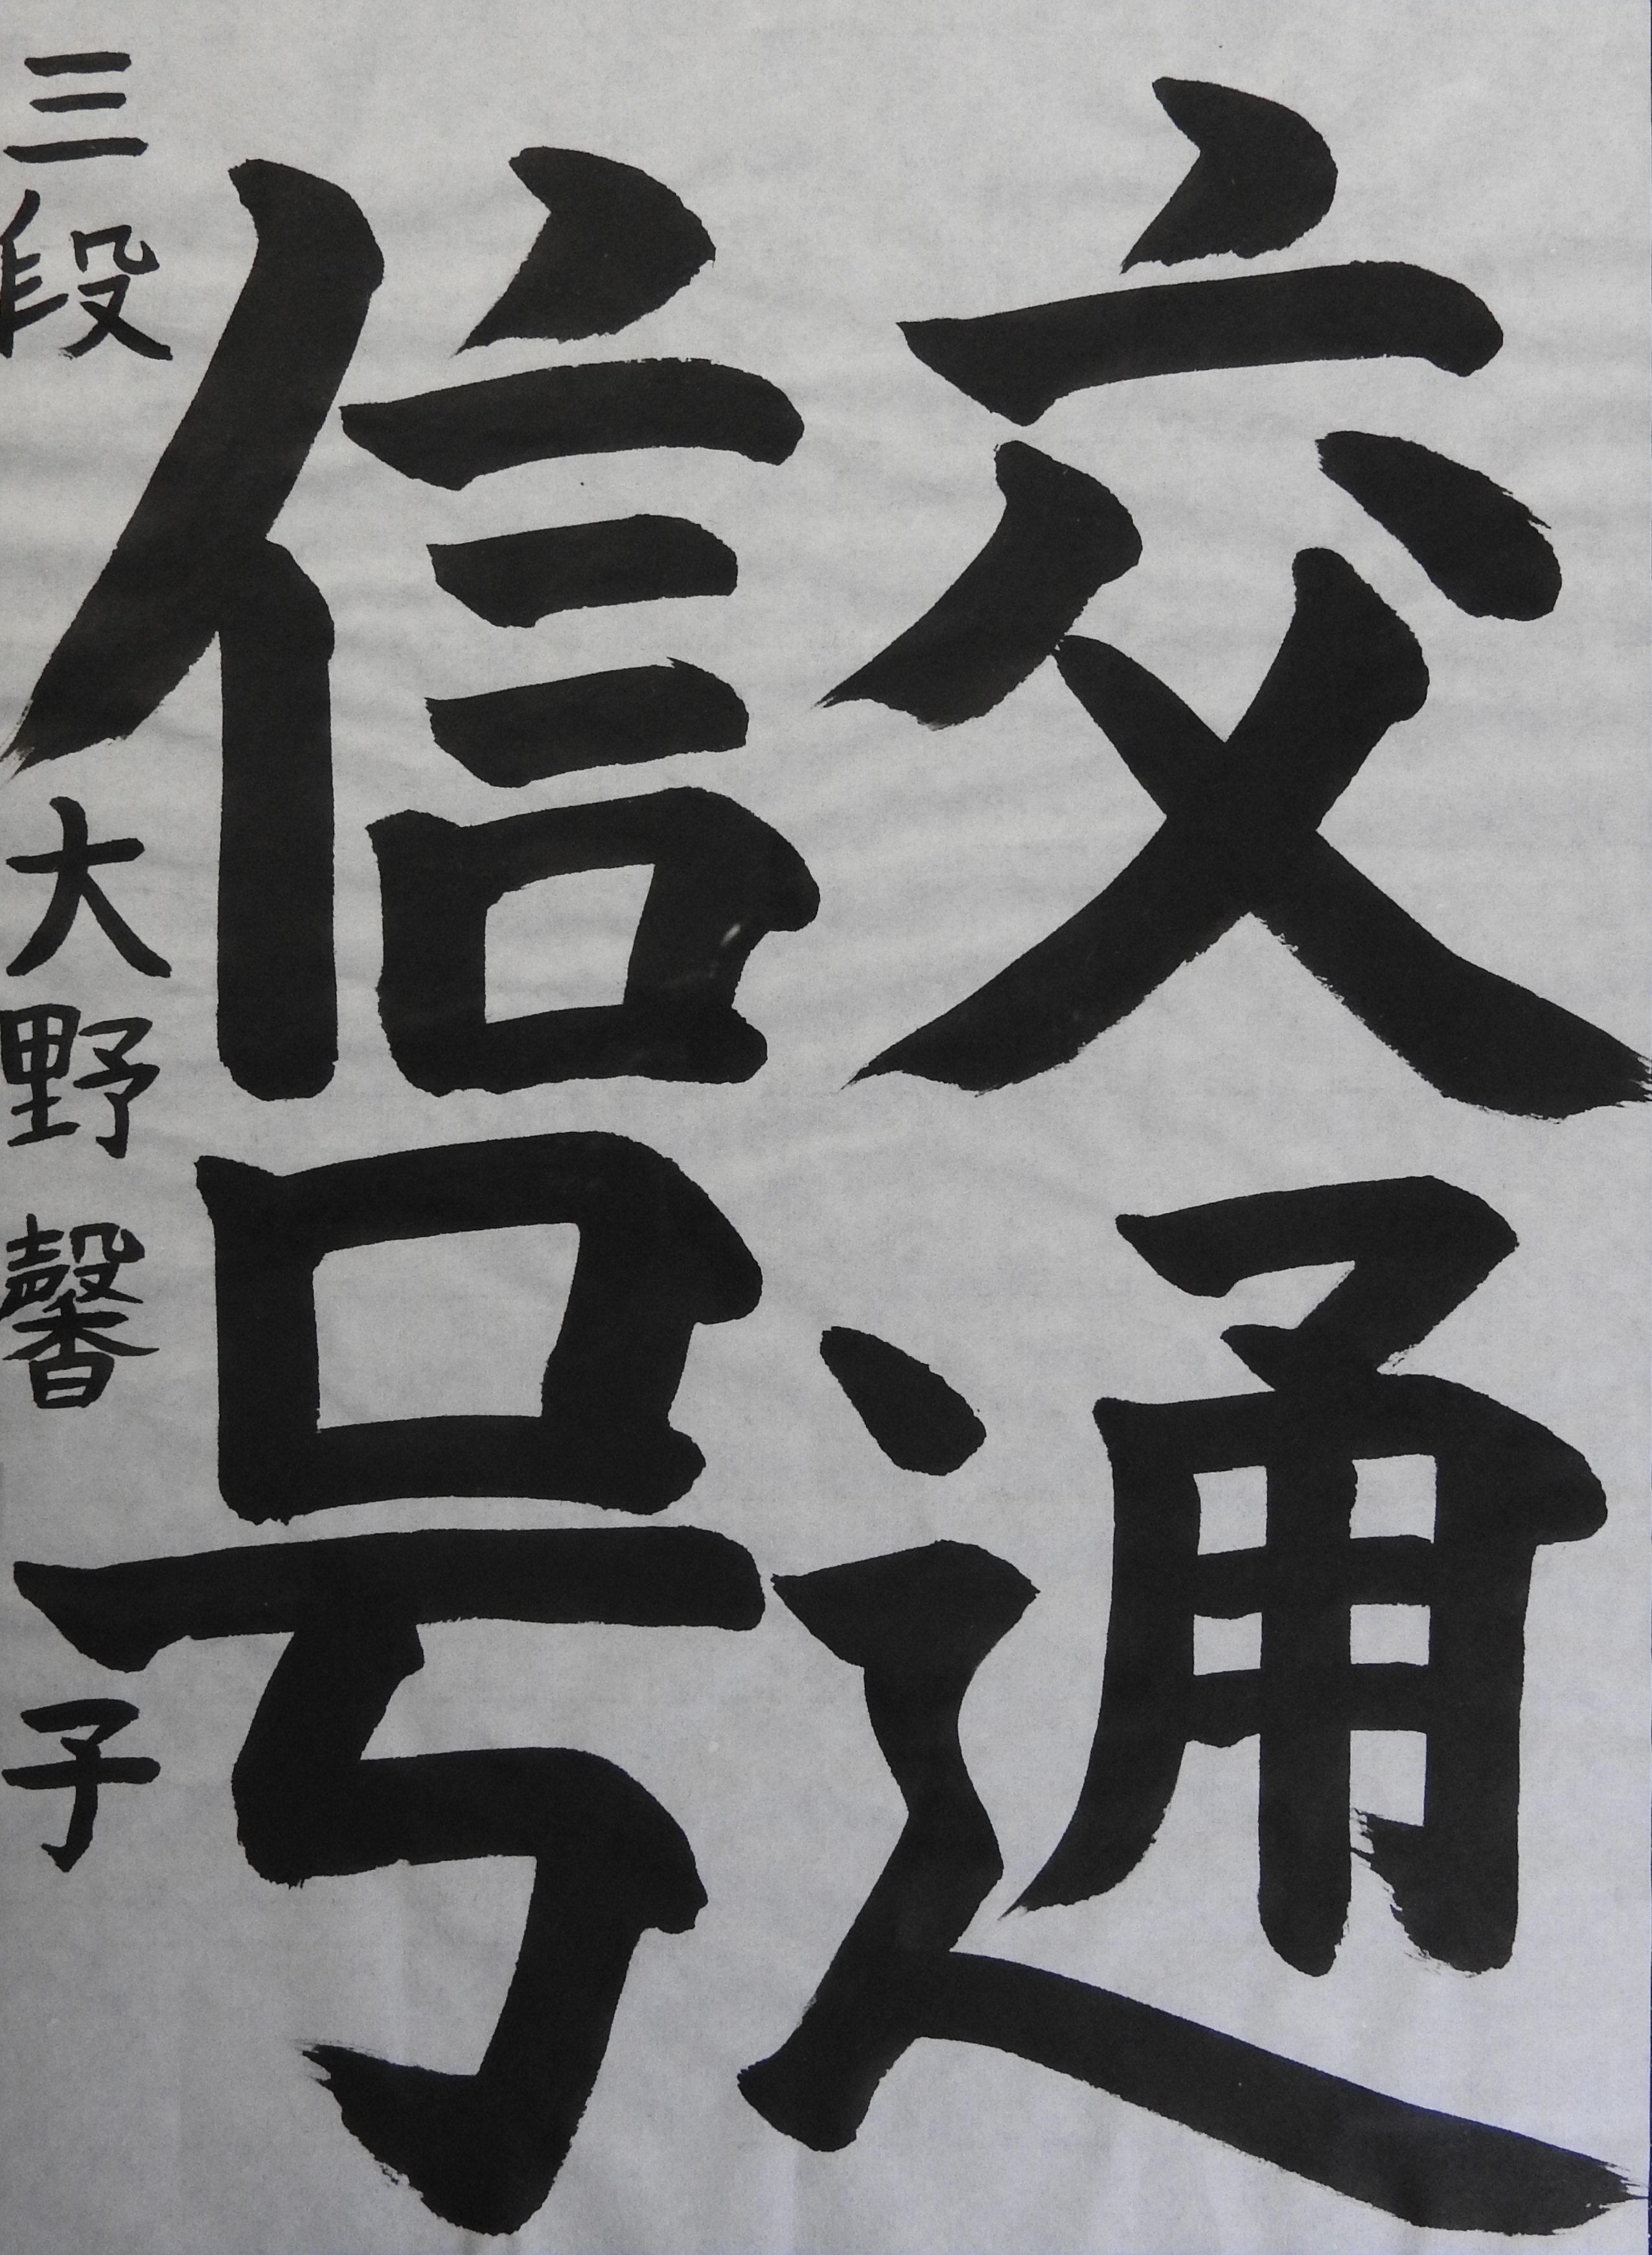 交通
信号
三段 大野馨子